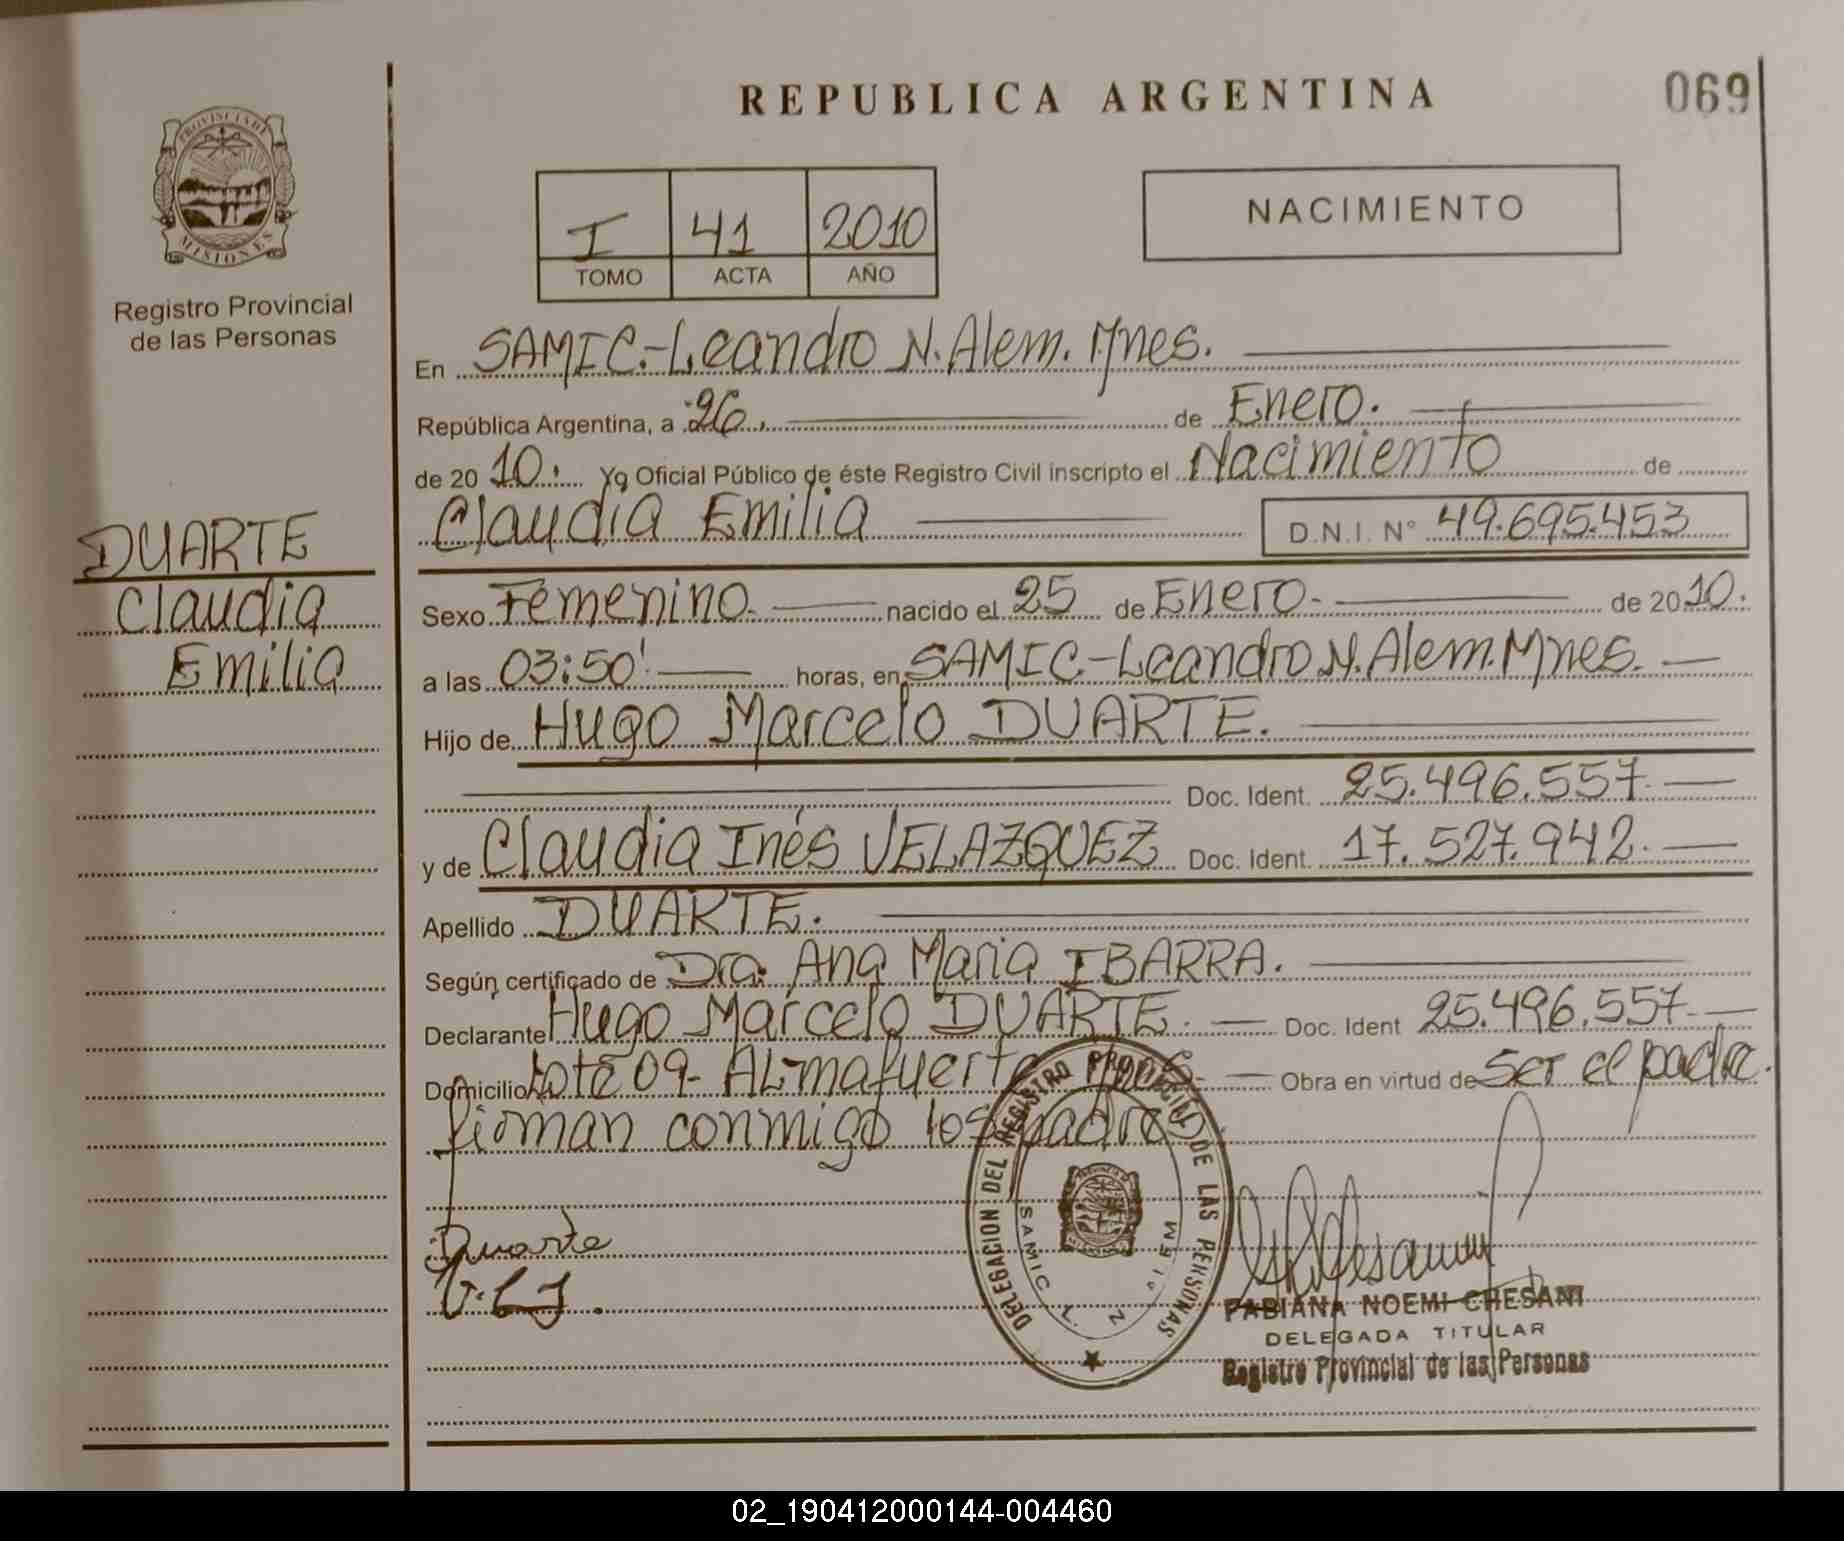 REPUBLICA ARGENTINA
069
PROVINCIA DE
MISIONES
Registro Provincial
de las Personas
I 41 2010
TOMO ACTA AÑO
NACIMIENTO
En SAMIC.-Leandro N. Alem. Mnes.
República Argentina, a 26. de Enero.
de 20 10. Yo Oficial Público de éste Registro Civil inscripto el Nacimiento de
Claudia Emilia D.N.I. N° 49.695.453
DUARTE
Claudia
Emilia
Sexo Femenino. nacido el 25 de Enero.- de 20 10.
a las 03:50' horas, en SAMIC.-Leandro N. Alem. Mnes.
Hijo de Hugo Marcelo DUARTE.
Doc. Ident. 25.496.557.
y de Claudia Inés VELAZQUEZ Doc. Ident. 17.527.942.
Apellido DUARTE.
Según certificado de Dra. Ana Maria IBARRA.
Declarante Hugo Marcelo DUARTE. Doc. Ident 25.496.557.
Domicilio Lote 09- AL-mafuerte Mnes. Obra en virtud de Ser el padre.
firman conmigo los padres
DELEGACION DEL REGISTRO PROVINCIAL DE LAS PERSONAS
SAMIC L. N. ALEM
Duarte
V.C.I.
FABIANA NOEMI CHESANI
DELEGADA TITULAR
Registro Provincial de las Personas
02_190412000144-004460